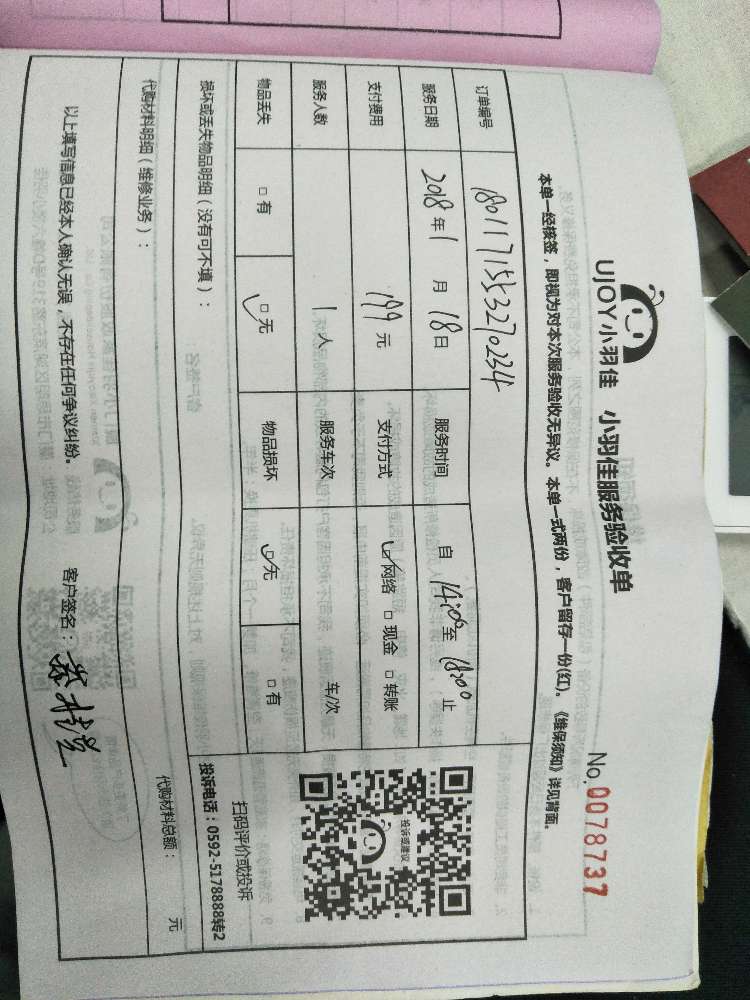 UJOY小羽佳 小羽佳服务验收单
No.0078737
本单一经核签，即视为对本次服务验收无异议。本单一式两份，客户留存一份(红)。《维保须知》详见背面。
订单编号 1801171553270234
服务日期 2018年1月18日 服务时间 自14:00至18:00止
支付费用 199元 支付方式 ☑网络 □现金 □转账
服务人数 1人 服务车次 车/次
物品丢失 □有 ☑无 物品损坏 ☑无 □有
投诉或建议
扫码评价或投诉
投诉电话：0592-5178888转2
损坏或丢失物品明细（没有可不填）：
代购材料明细（维修业务）：
代购材料总额： 元
以上填写信息已经本人确认无误，不存在任何争议纠纷。 客户签名：